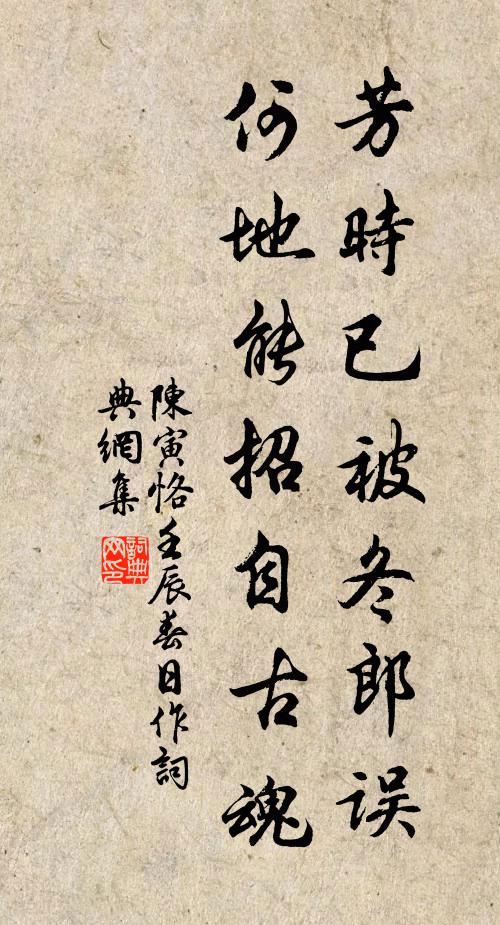 芳時已被冬郎误
何地能招自古魂
陳寅恪壬辰春日作詞
典網集
詞典
网印